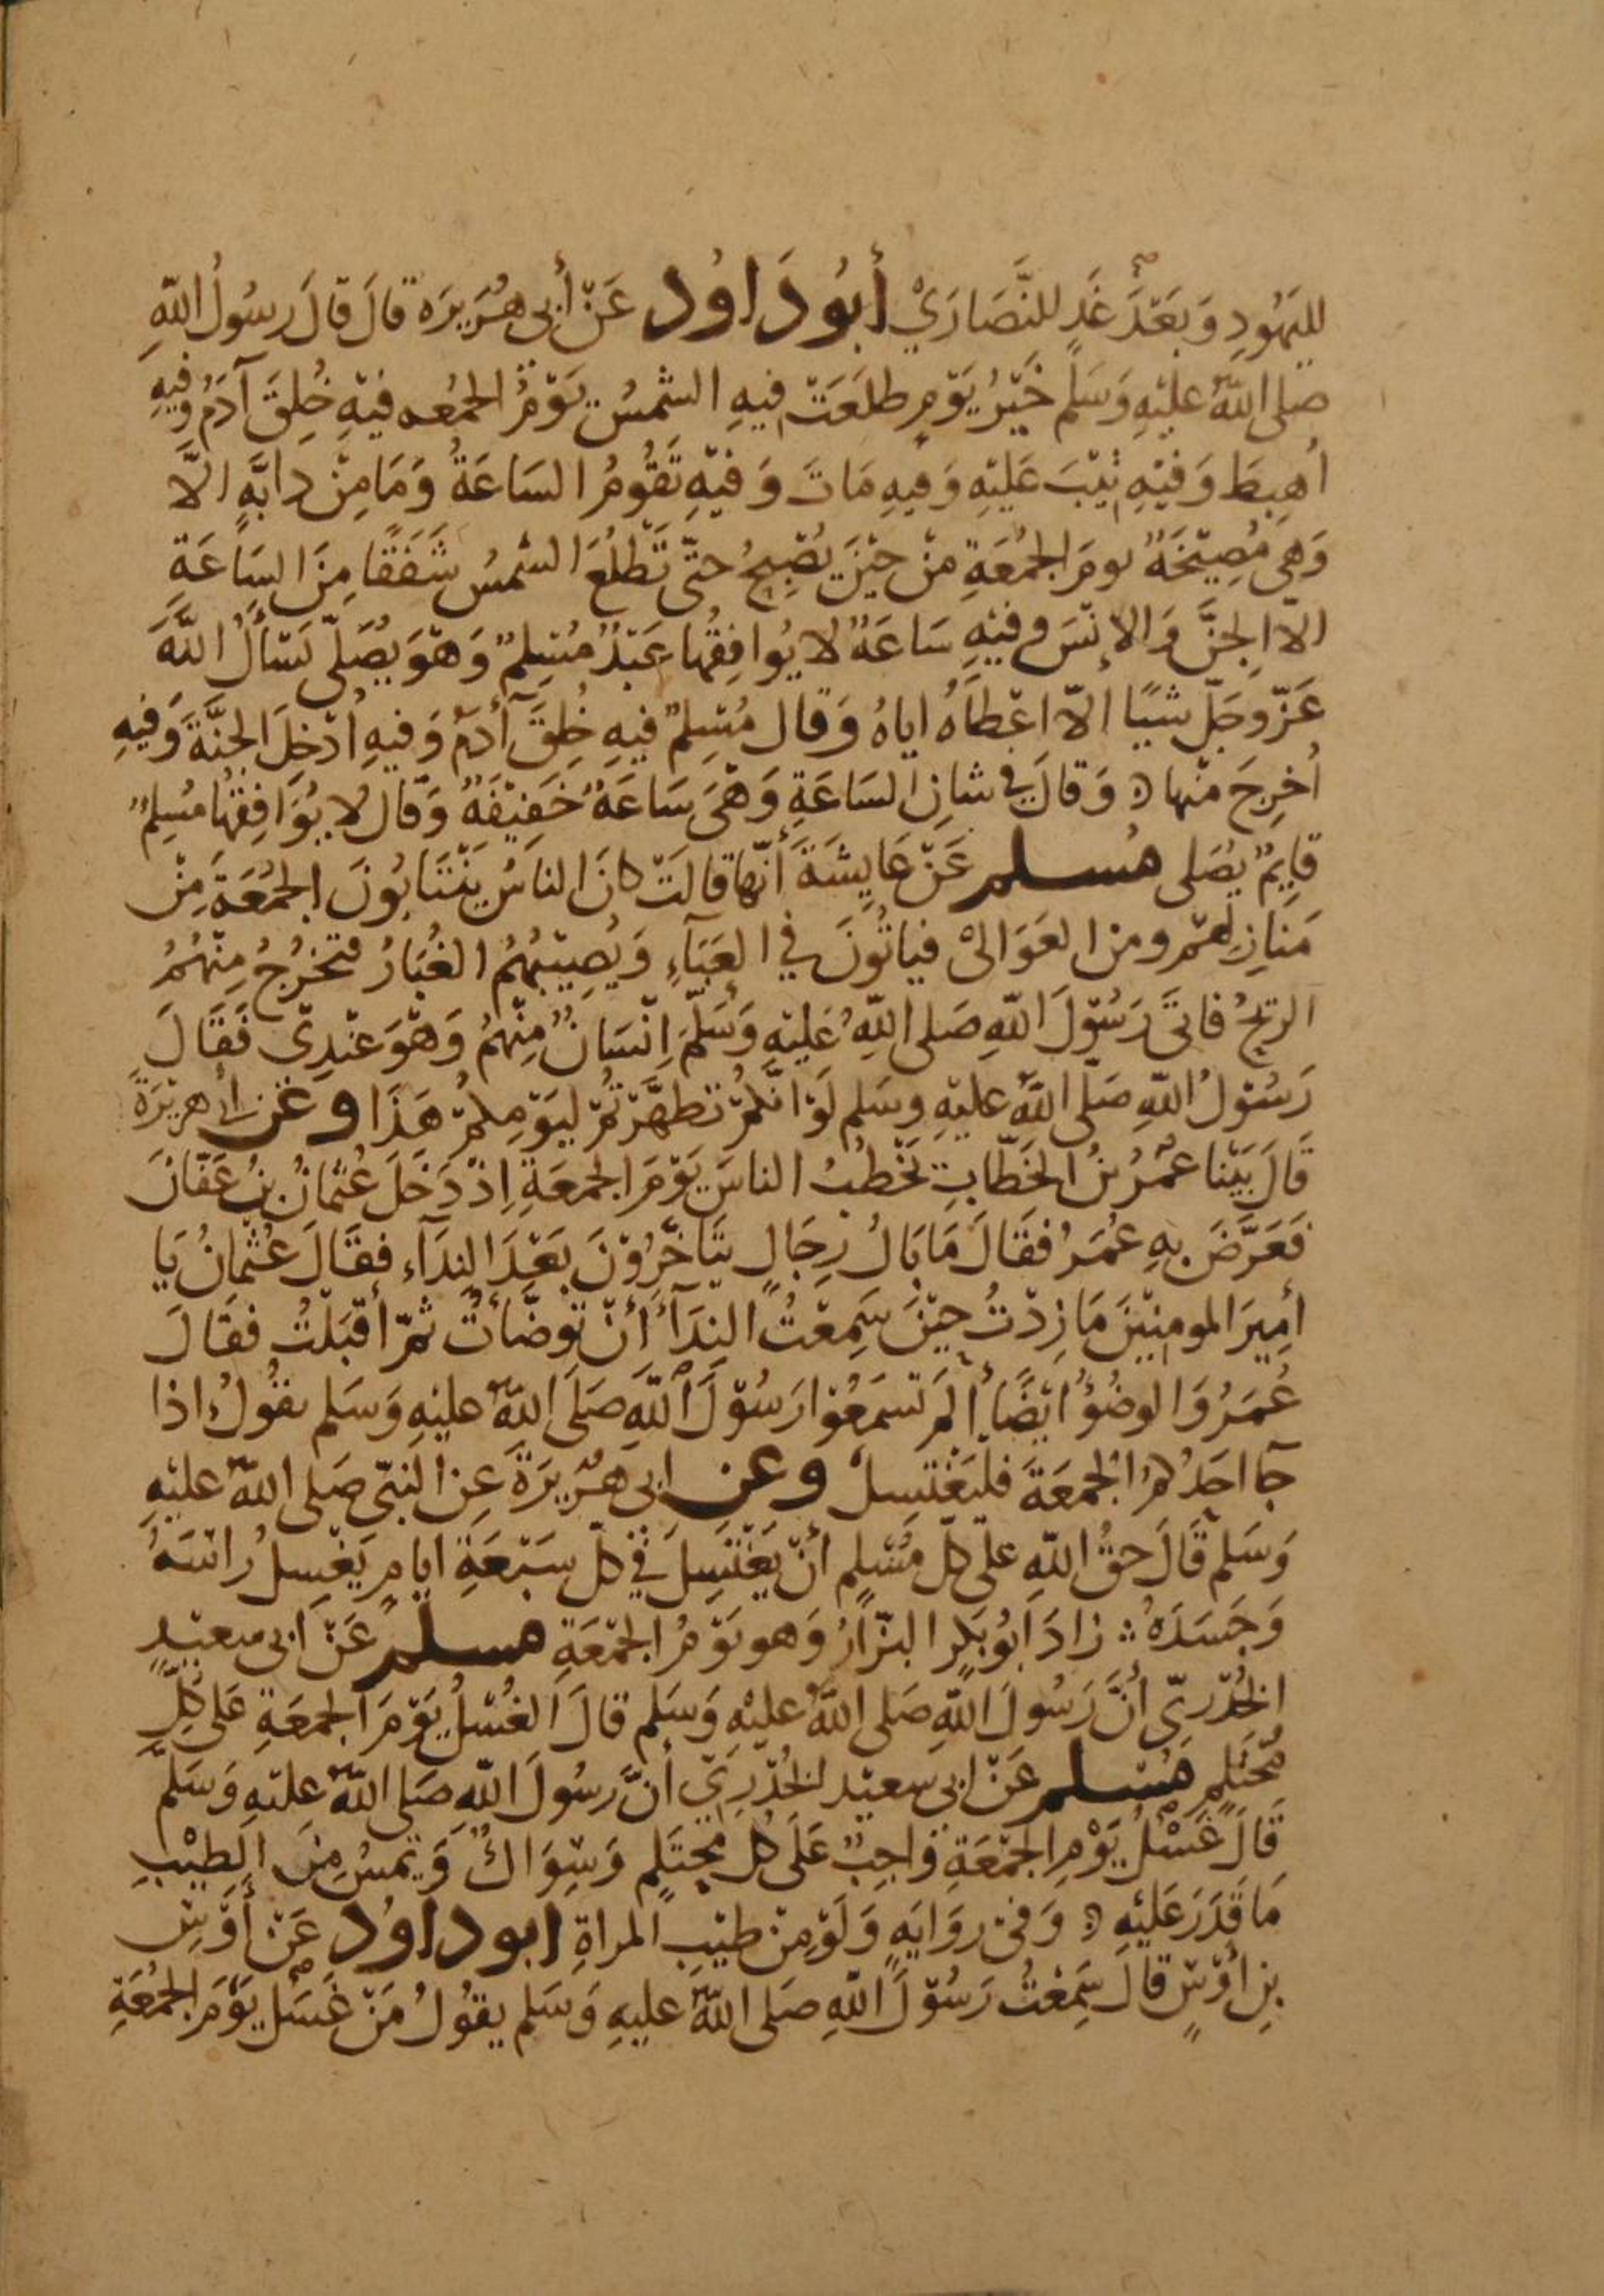 لليَهُودِ وَبَعْدَ غَدٍ للنَّصَارَيْ أبُو دَاوُد عَنْ أبي هُرَيرَه قالَ قالَ رسُولُ اللهِ
صلى اللهُ عليْهِ وَسَلم خَيْرُ يَوْمٍ طلعَتْ فيهِ الشمسُ يَوْمُ الجمُعه فيْهِ خُلِقَ آدَمُ وفيهِ
أهبِطَ وَفيْهِ تيْبَ عَليْهِ وَفيهِ مَاتَ وَفيْهِ تقُومُ السَاعَةُ وَمَا مِنْ دابَّهٍ الَّا
وَهي مُصِيْخَهٌ يومَ الجمُعَةِ مِنْ حيْنَ يُصْبحُ حتّى تَطْلُعَ الشمسُ شَفَقًا مِنَ السَاعَةِ
الاّ الجنَّ وَالإنْسَ وفيْهِ سَاعَهٌ لا يُوافِقُها عَبْدٌ مُسْلِمٌ وَهْوَ يُصَلّى يَسْألُ اللهَ
عَزّ وجَلّ شيًا الاّ اعْطاهُ اياهُ وَقال مُسْلِمٌ فيهِ خُلِقَ آدَمُ وَفيهِ أدْخِلَ الجنَّةَ وَفيهِ
أخرِجَ منْها ه وَقالَ في شانِ السَاعَةِ وَهْيَ سَاعَهٌ خَفيْفَهٌ وَقال لا يُوَافِقُها مُسلِمٌ
قايمٌ يُصَلى مُسلم عَنْ عَايشَةَ أنَّها قالَتْ كانَ الناسُ يَنْتَابُونَ الجمُعَةَ مِنْ
مَنازِلهم ومن العَوَالىْ فياتُونَ في العَبَآءِ وَيُصِيْبُهُمُ الغُبَارُ فتخرُجُ مِنْهُمُ
الريحُ فاتىَ رَسُوْلَ اللهِ صَلى اللهُ عَليْهِ وَسَلّمَ اِنْسَانٌ مِنْهُمُ وَهْوَ عنْدِىْ فَقَالَ
رَسُوْلُ اللهِ صَلّى اللهُ عليْهِ وسَلم لَوْ انكمْ تطهَّرْتُمْ ليَوْمِكمْ هَذَا وعَن أبي هريْرَةَ
قَالَ بَيْنا عُمَرُ بنُ الخطّابِ يَخْطُبُ الناسَ يَوْمَ الجمعَةِ اِذْ دَخَلَ عُثمانُ بنُ عَفّانَ
فَعَرَّضَ بهِ عُمَرُ فقَالَ مَا بَالُ رِجَالٍ يتَاخّرُوْنَ بَعْدَ النِدَآء فقَالَ عُثْمانُ يَا
أمِيرَ المومِنيْنَ مَا زِدْتُ حيْنَ سَمِعْتُ الندَآءَ أنْ توضَّأتُ ثمّ أقبَلْتُ فقَالَ
عُمَرُ وَالوضُؤُ ايْضًا ألمْ تَسمَعُوْا رَسُوْلَ اللهِ صَلَى اللهُ عليْهِ وَسَلم يقُولُ اذا
جآ احَدُكمُ الجمعَةَ فليَغْتسِلْ وعن ابى هُرَيْرَةَ عِن النبّى صَلى اللهُ عليْهِ
وَسَلمْ قَالَ حقُّ اللهِ علىَ كلّ مُسْلمٍ أنْ يَغْتَسِلَ في كلّ سَبْعَةِ ايامٍ يَغْسِلُ رَاسَهُ
وَجَسَدَهُ زادَ ابُو بَكرٍ البزّارُ وَهو يَوْمُ الجمْعَةِ مسلم عَنْ ابى سعيْدٍ
الخُدْرِيّ أنَّ رَسُولَ اللهِ صَلى اللهُ عليْهِ وَسَلم قالَ الغُسْلُ يَوْمَ الجمعَةِ عَلى كلِّ
مُحْتَلِمٍ مُسلم عَنْ ابي سعيْد الخُدْرِيّ أنَّ رسُولَ اللهِ صَلى اللهُ عليْهِ وَسَلمَّ
قالَ غُسْلُ يَوْمِ الجمْعَةِ وَاجِبٌ عَلَى كل محتَلمٍ وَسِوَاكٌ وَيَمسُ مِنَ الطِيْبِ
مَا قَدَرَ عَليْهِ ه وَفىْ روَايَهٍ وَلَوْ مِنْ طيْبِ المراةِ ابو داوُد عَنْ أوْسِ
بنِ أوْسٍ قالَ سَمِعْتُ رَسُوْلَ اللهِ صَلى اللهُ عليهِ وَسَلم يقُولُ مَنْ غَسَلَ يَوْمَ الجمُعَةِ